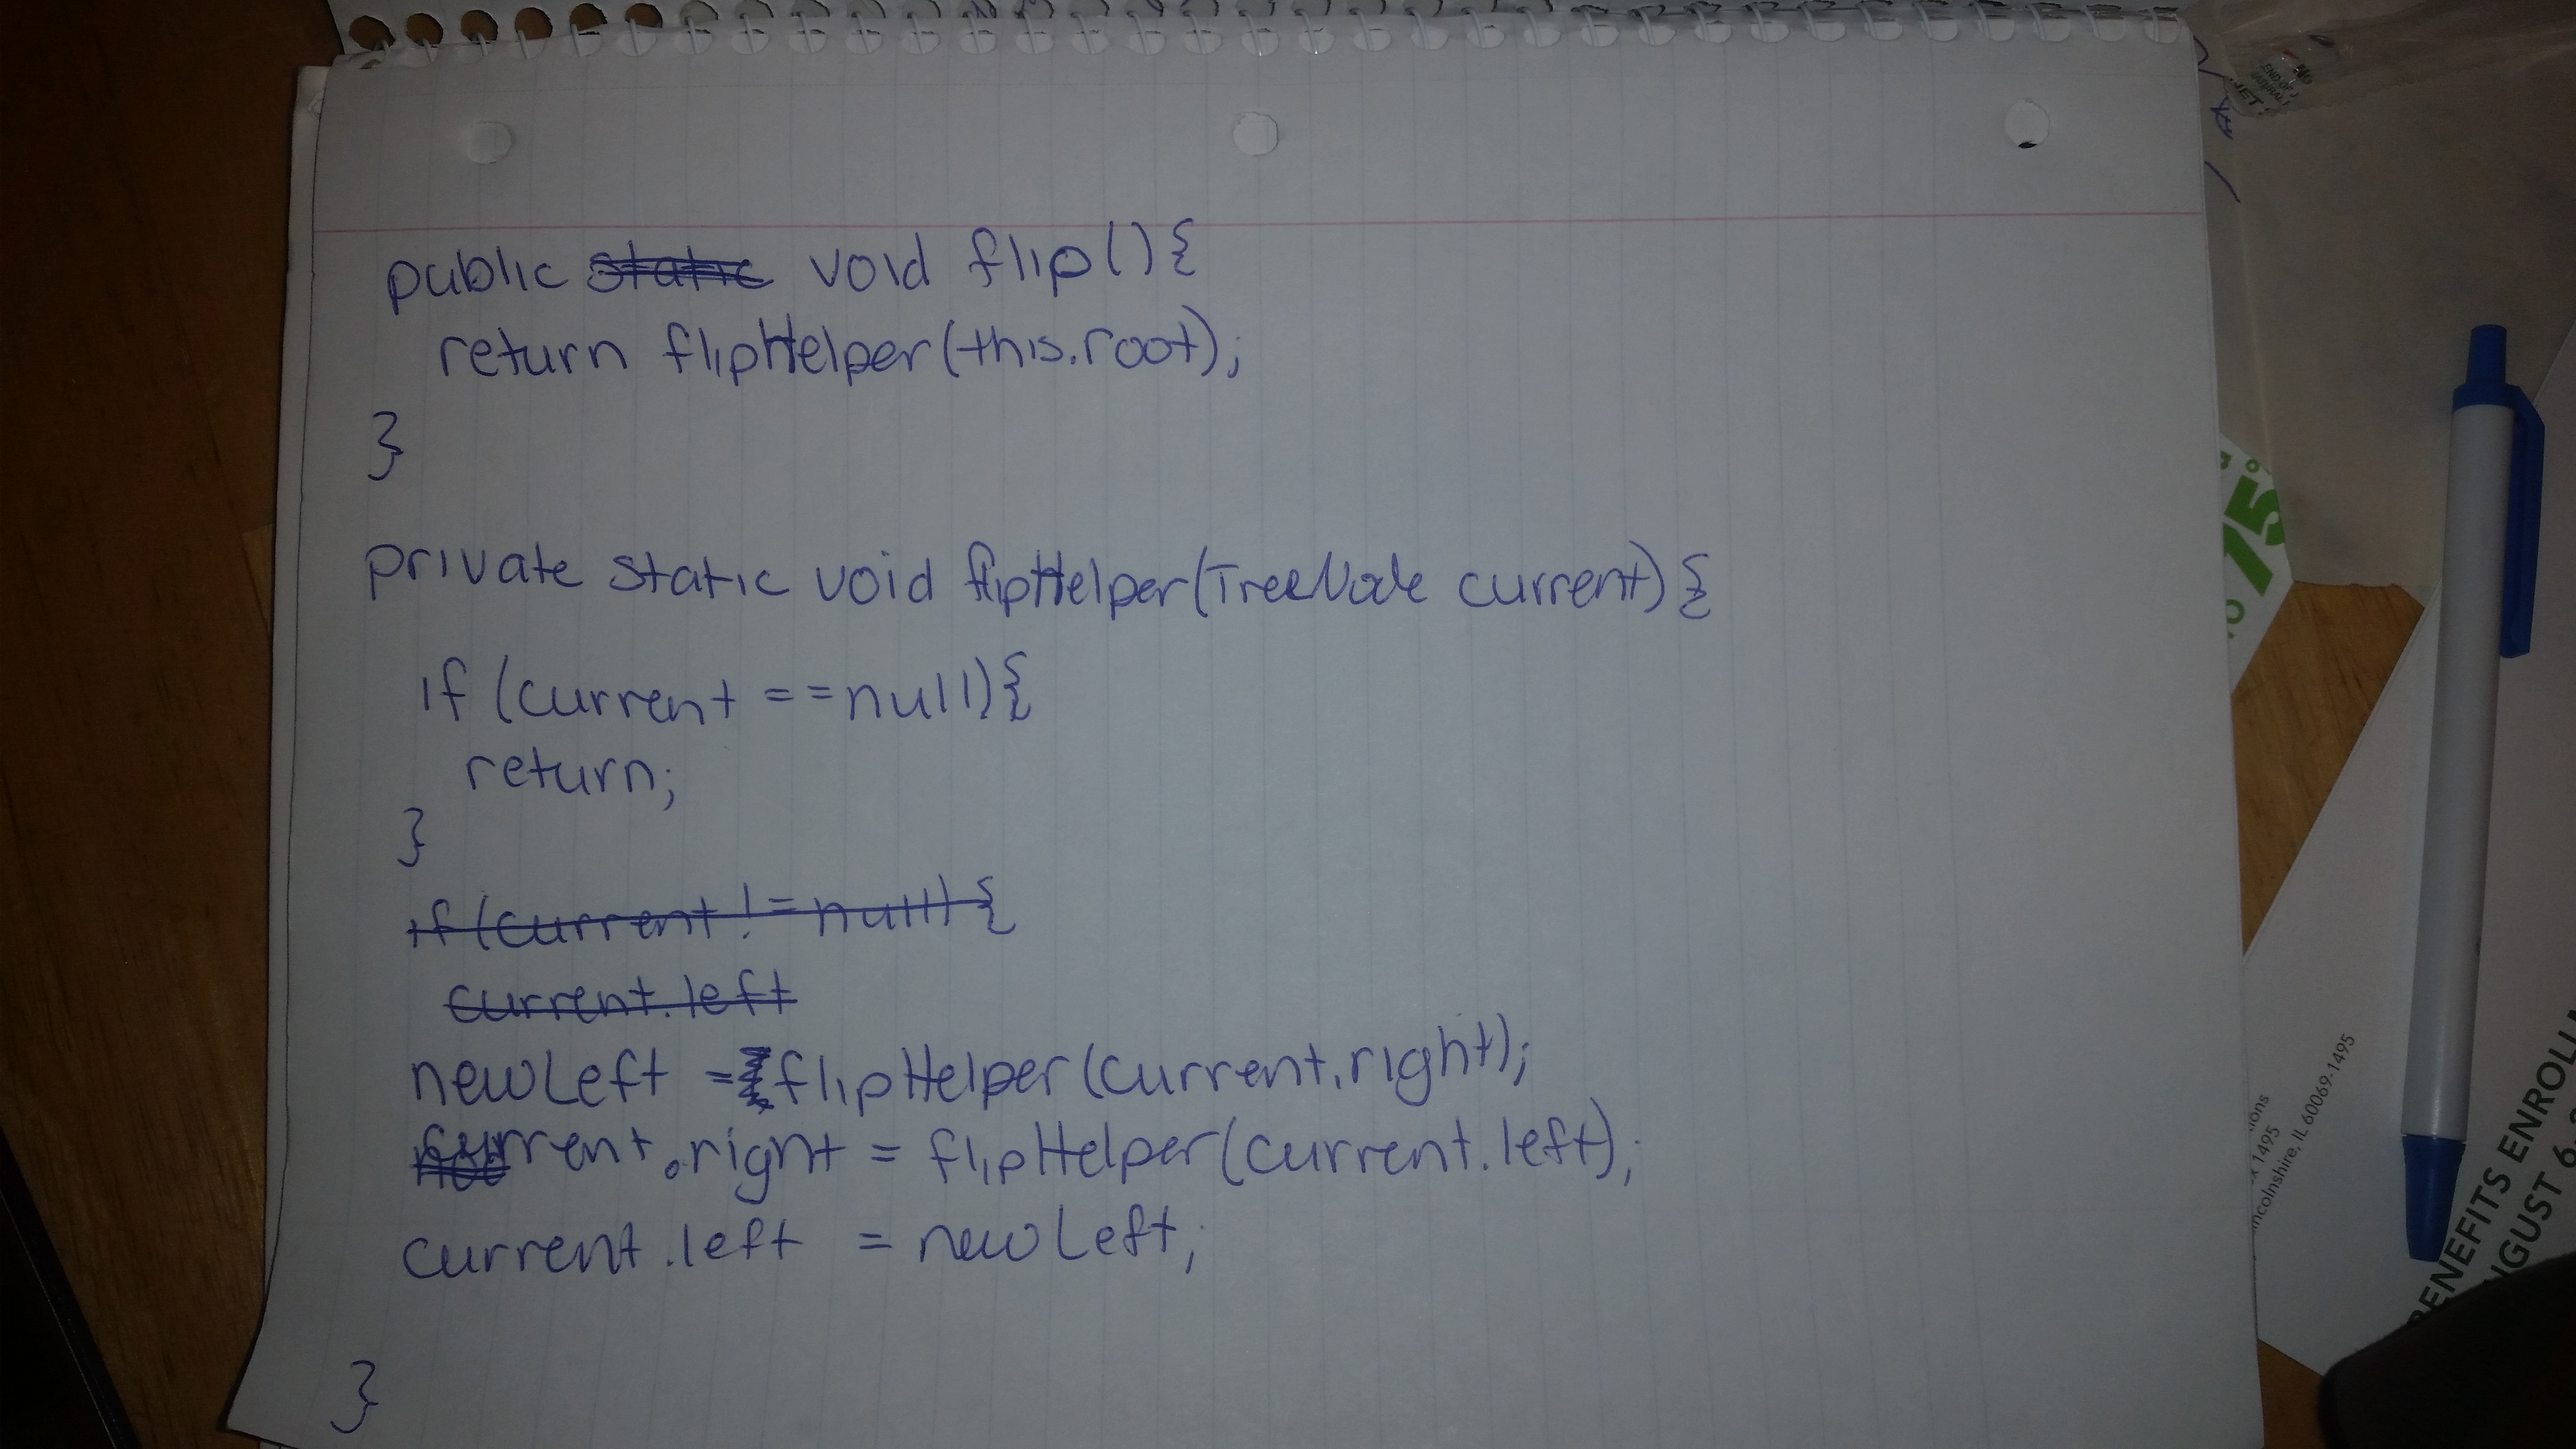 public static void flip(){
return flipHelper(this.root);
}
private static void flipHelper(TreeNode current){
if (current ==null){
return;
}
if (current != null) {
current.left
newLeft = flipHelper(current.right);
current.right = flipHelper(current.left);
current.left = newLeft;
}
75
ions
x 1495
incolnshire, IL 60069-1495
BENEFITS ENROLL
UGUST 6